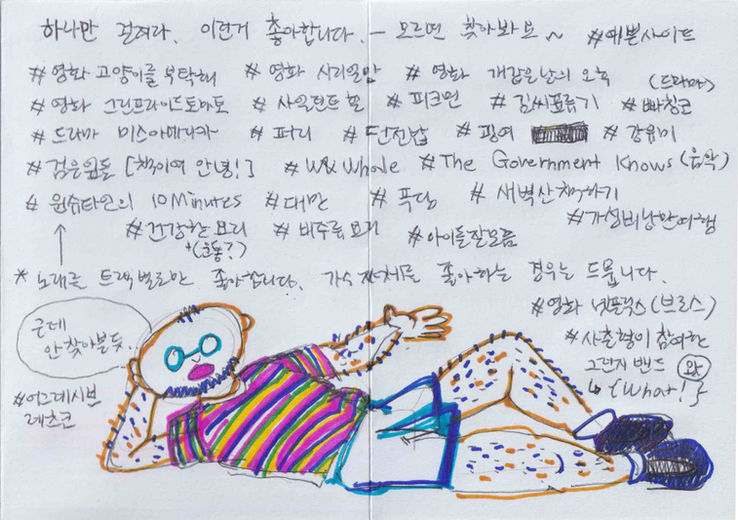 하나만 걸려라. 이런거 좋아합니다. - 모르면 찾아봐봐 ~ #예쁜사이트
#영화 고양이를 부탁해 #영화 시리얼맘 #영화 개같은날의 오후
#영화 그린프라이드토마토 #사일런트힐 #피크민 #김씨표류기 (드라마) #빠칭코
#드라마 미스아메리카 #퍼리 #단전밥 #핑여 #강유미
#검은원들 [책이여 안녕!] #W&Whale #The Government Knows (음악)
#원슈타인의 10Minutes #대만 #폭담 #새벽산책하기
#건강한 요리 +(운동?) #비주류 요리 #아이돌잘모름 #가성비낭만여행
* 노래를 트랙별로만 좋아합니다. 가수 자체를 좋아하는 경우는 드뭅니다.
#영화 넷플릭스(브로스)
근데 안 찾아볼듯..
#사촌형이 참여한
그런지 밴드 왓
↳ {What!}
#어그레시브
레츠코